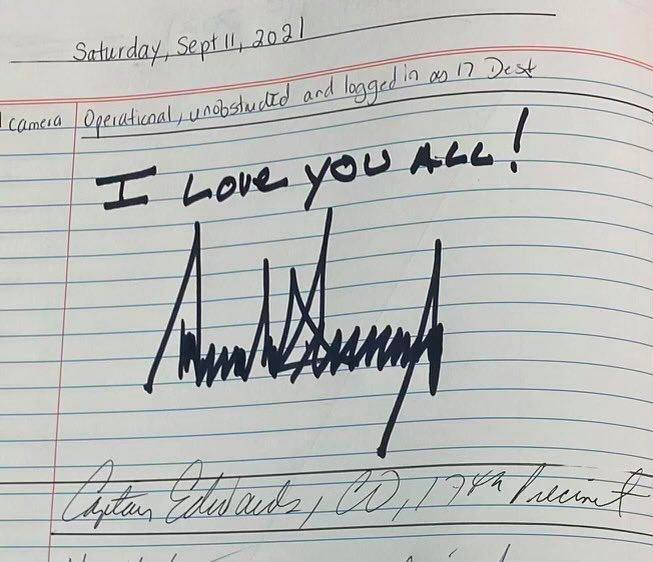 Saturday, Sept 11, 2021
camera Operational, unobstucted and logged in as 17 Desk
I Love YOU ALL!
Captain Edwards, CO, 17th Precinct